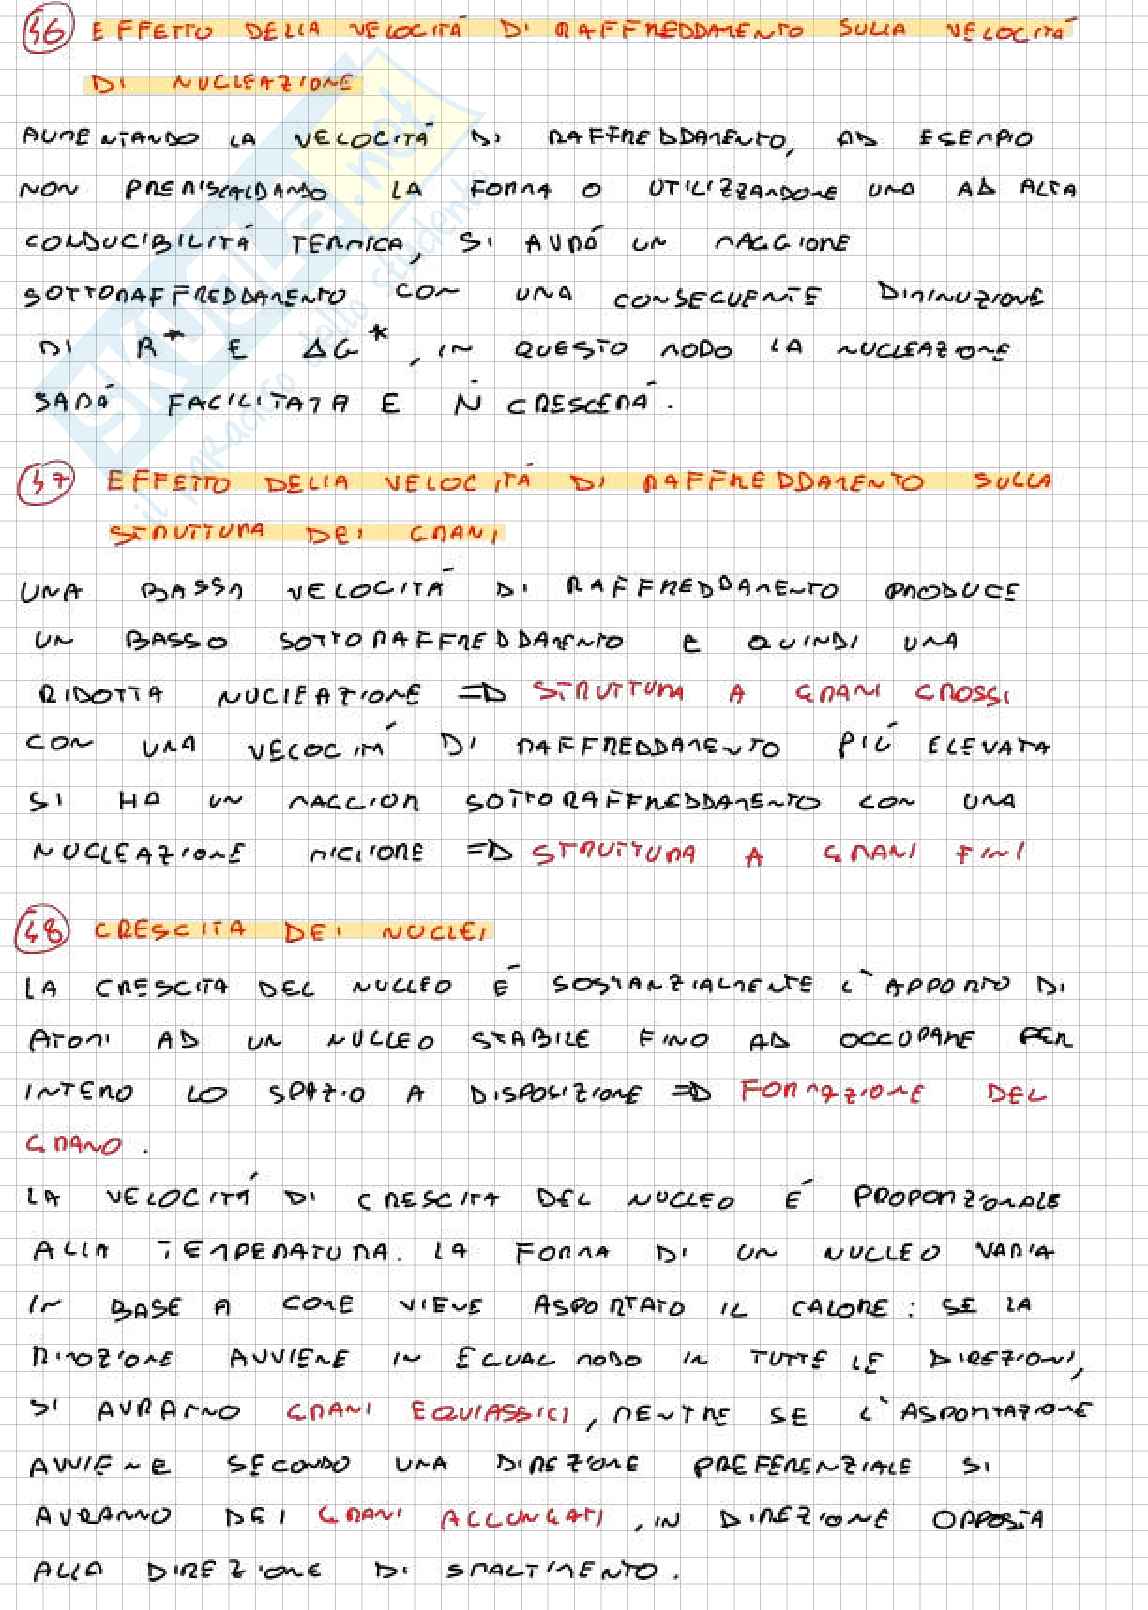 46 EFFETTO DELLA VELOCITÁ DI RAFFREDDAMENTO SULLA VELOCITÁ
DI NUCLEAZIONE
AUMENTANDO LA VELOCITÁ DI RAFFREDDAMENTO, AD ESEMPIO
NON PRERISCALDANDO LA FORMA O UTILIZZANDONE UNA AD ALTA
CONDUCIBILITÁ TERMICA, SI AVRÓ UN MAGGIORE
SOTTORAFFREDDAMENTO CON UNA CONSEGUENTE DIMINUZIONE
DI R* E ΔG*, IN QUESTO MODO LA NUCLEAZIONE
SARÁ FACILITATA E Ṅ CRESCERÁ.
47 EFFETTO DELLA VELOCITÁ DI RAFFREDDAMENTO SULLA
STRUTTURA DEI GRANI
UNA BASSA VELOCITÁ DI RAFFREDDAMENTO PRODUCE
UN BASSO SOTTORAFFREDDAMENTO E QUINDI UNA
RIDOTTA NUCLEAZIONE => STRUTTURA A GRANI GROSSI
CON UNA VELOCITÁ DI RAFFREDDAMENTO PIÚ ELEVATA
SI HA UN MAGGIOR SOTTORAFFREDDAMENTO CON UNA
NUCLEAZIONE MIGLIORE => STRUTTURA A GRANI FINI
48 CRESCITA DEI NUCLEI
LA CRESCITA DEL NUCLEO É SOSTANZIALMENTE L'APPORTO DI
ATOMI AD UN NUCLEO STABILE FINO AD OCCUPARE PER
INTERO LO SPAZIO A DISPOSIZIONE => FORMAZIONE DEL
GRANO.
LA VELOCITÁ DI CRESCITA DEL NUCLEO É PROPORZIONALE
ALLA TEMPERATURA. LA FORMA DI UN NUCLEO VARIA
IN BASE A COME VIENE ASPORTATO IL CALORE: SE LA
RIMOZIONE AVVIENE IN EGUAL MODO IN TUTTE LE DIREZIONI,
SI AVRANNO GRANI EQUIASSICI, MENTRE SE L'ASPORTAZIONE
AVVIENE SECONDO UNA DIREZIONE PREFERENZIALE SI
AVRANNO DEI GRANI ALLUNGATI, IN DIREZIONE OPPOSTA
ALLA DIREZIONE DI SMALTIMENTO.
SKUOLA.net
il paradiso dello studente